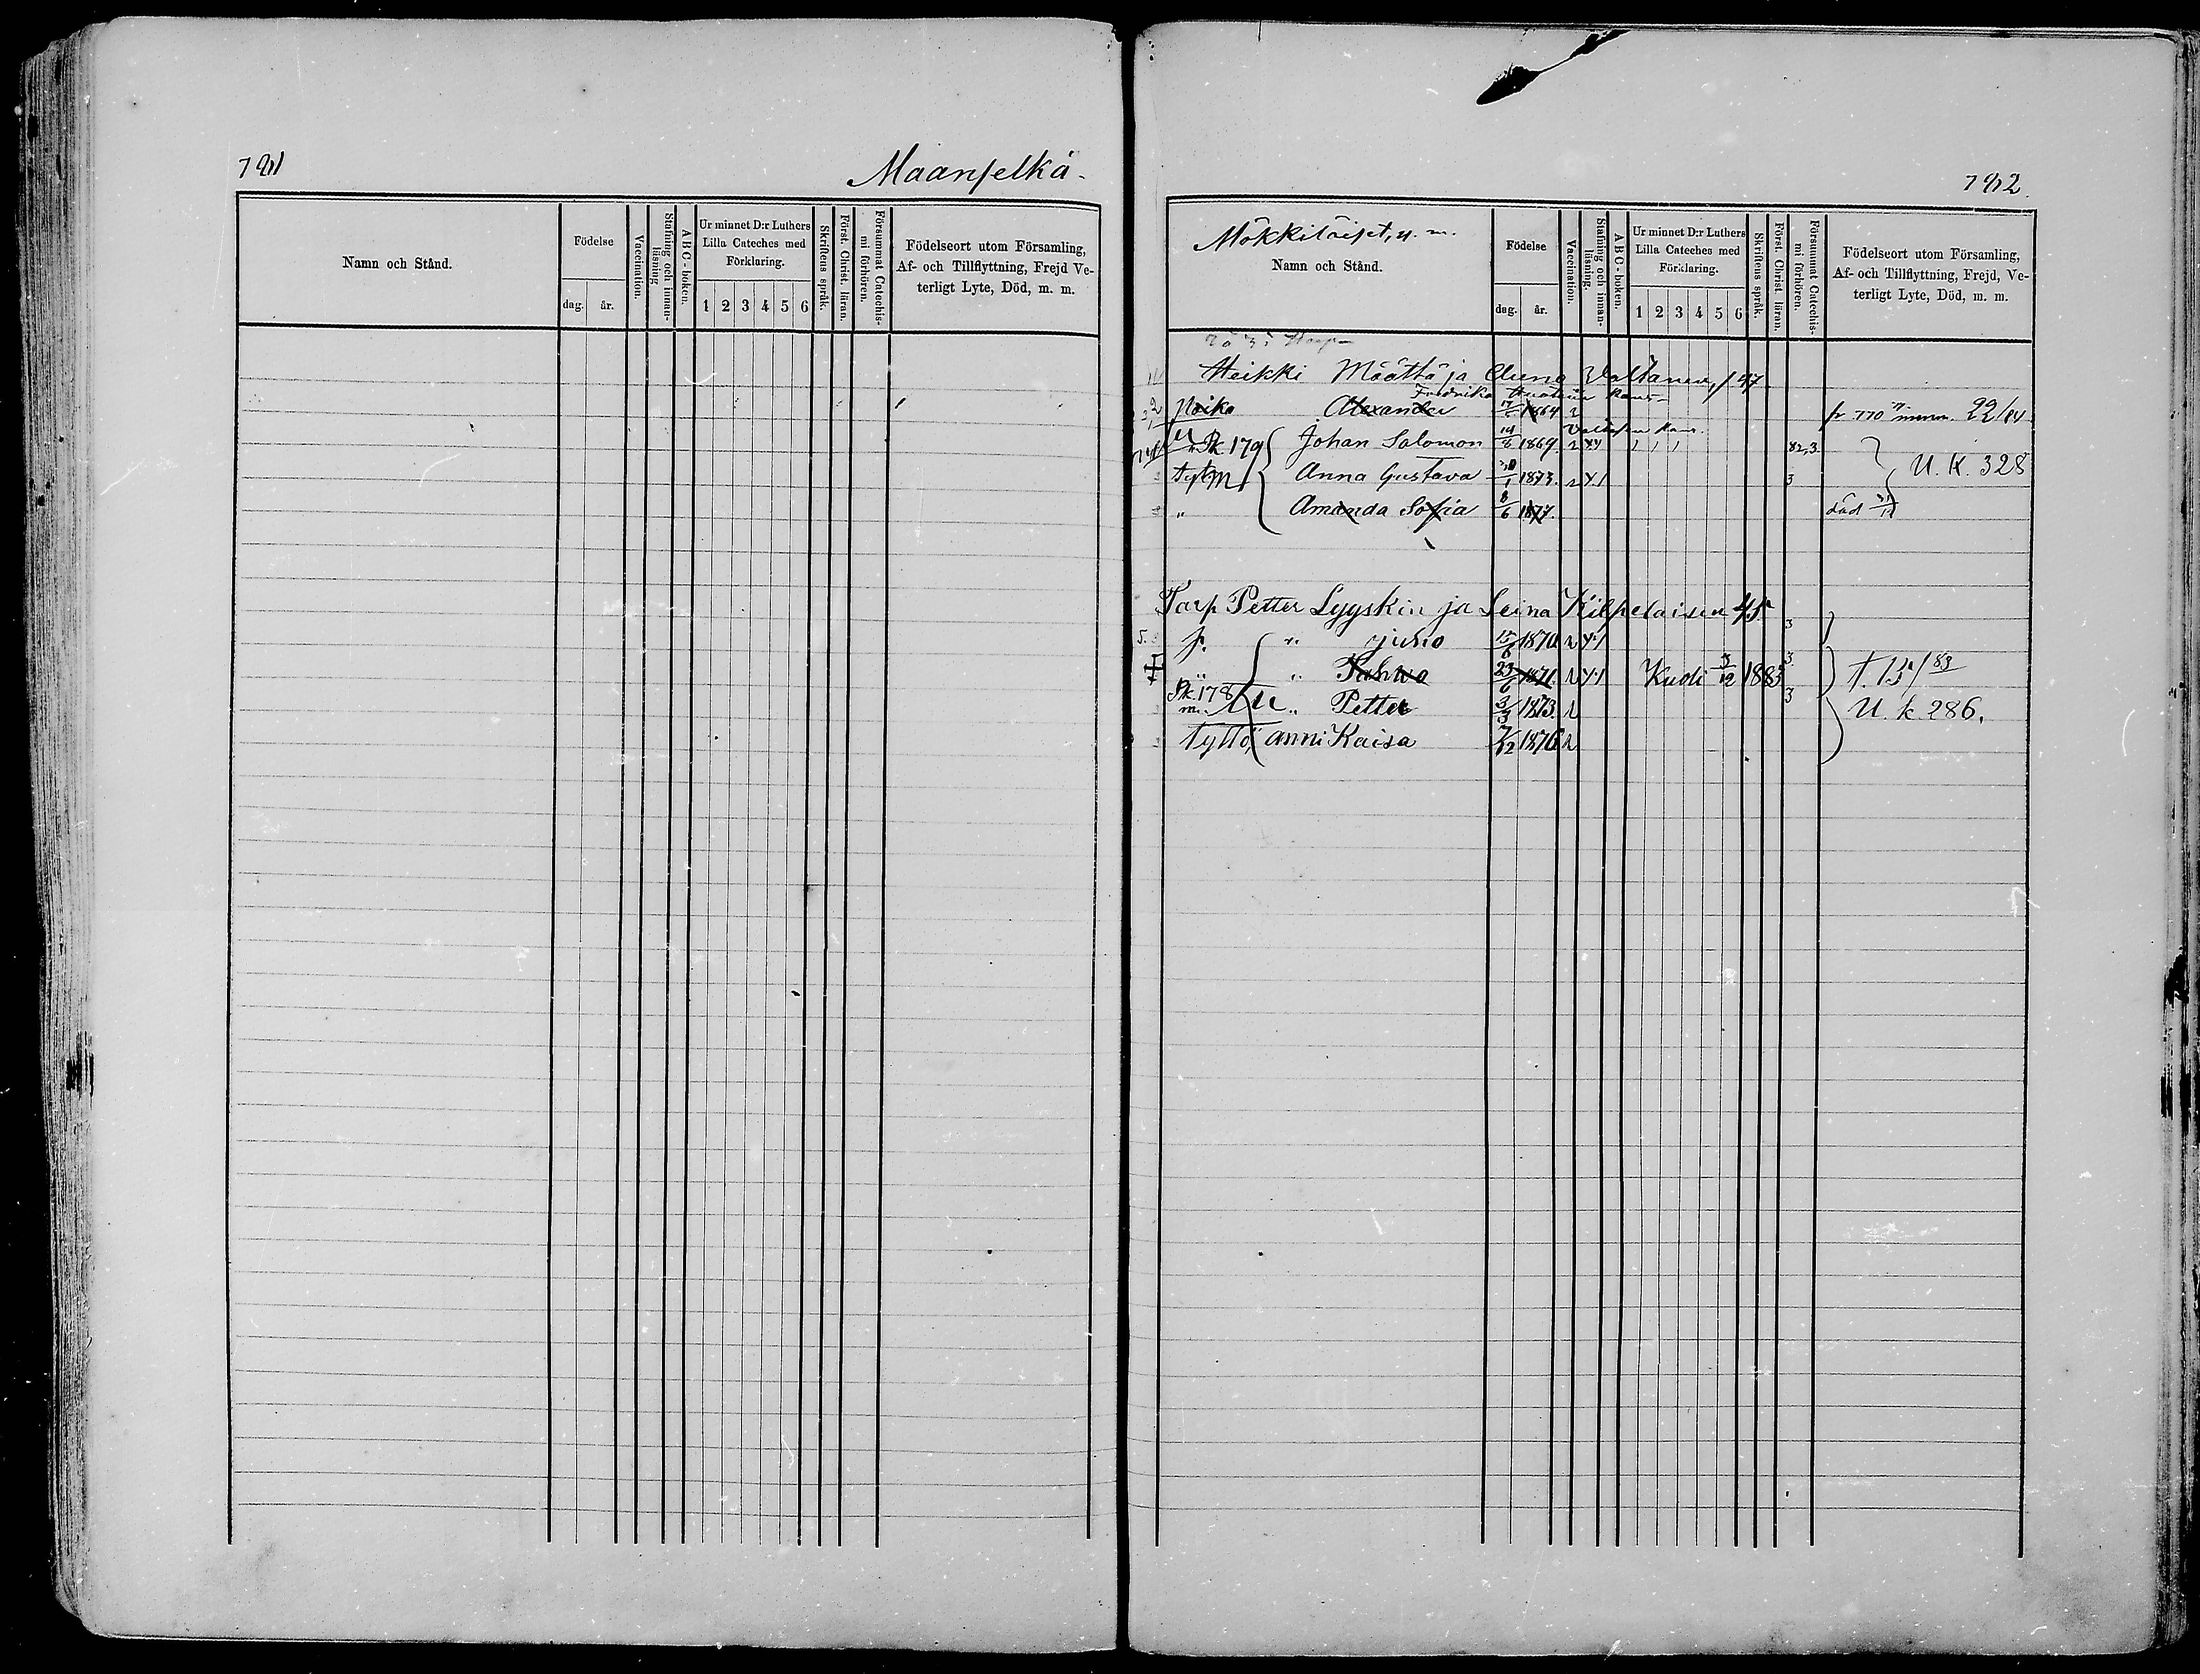 781
Maanselkä.
Namn och Stånd.
Födelse
dag.
år.
Vaccination.
Stafning och innanläsning
ABC-boken.
Ur minnet D:r Luthers Lilla Cateches med Förklaring.
1 2 3 4 5 6
Skriftens språk.
Först. Christ. läran.
Försummat Catechismi förhören.
Födelseort utom Församling,
Af- och Tillflyttning, Frejd Ve-
terligt Lyte, Död, m. m.
782.
Mökkiläiset, y. m.
Namn och Stånd.
Födelse
dag.
år.
Vaccination.
Stafning och innanläsning.
ABC-boken.
Ur minnet D:r Luthers
Lilla Cateches med
Förklaring.
1 2 3 4 5 6
Skriftens språk.
Först. Christ. läran.
Försummat Catechismi förhören.
Födelseort utom Församling,
Af- och Tillflyttning, Frejd, Ve-
terligt Lyte, Död, m. m.
Heikki Määttä ja Valtanen /47
Fredrika
Poika Alexander 17/ 1864 22/84
Rk 179 Johan Salomon 14/8 1869. 82,3
Anna Gustava 1873. 3 U. K. 328
" Amanda Sofia 8/6 1877. död
Torp Petter Lyyskin ja Leina Kilpelaisen 45 3
p. " juho 15/6 1870
" " Pahwo 23/6 1871. Kuoli 5/12 1883 3 t. 13/83
Rk 178 " Petter 3/3 1873. 3 U. k 286.
tyttö, Anni Kaisa 7/12 1876